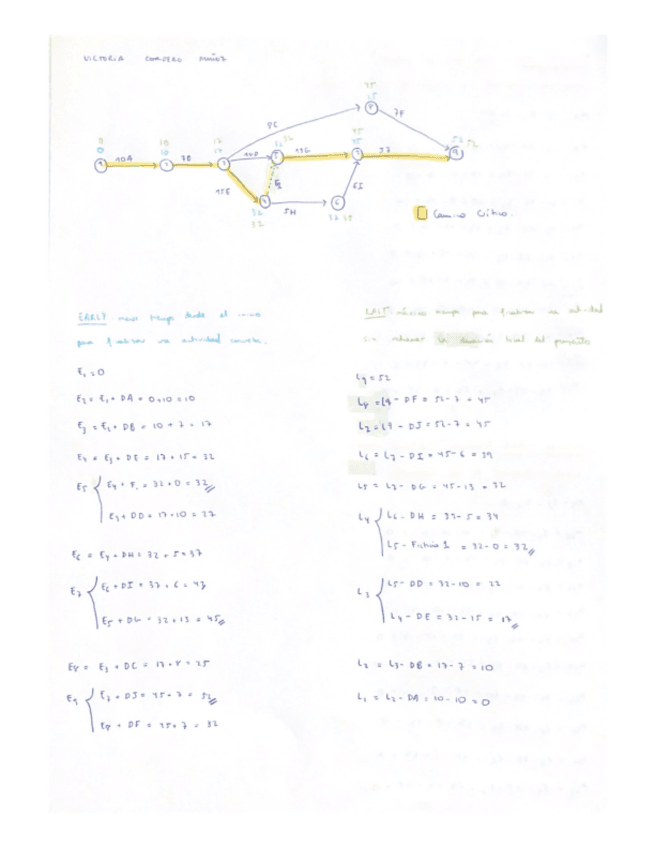 VICTORIA CORDERO MUÑOZ
45
25
8
8C
7F
0
0
10
10
17
17
32
32
45
45
52 52
10A
7B
10D
13G
J7
1
2
3
5
7
9
15E
F1
6I
4
5H
6
32
32
37 39
Camino Crítico.
EARLY: tiempo desde el inicio
para finalizar una actividad concreta.
E1 = 0
E2 = E1 + DA = 0+10 = 10
E3 = E2 + DB = 10 + 7 = 17
E4 = E3 + DE = 17 + 15 = 32
E5 { E4 + F1 = 32 + 0 = 32
E3 + DD = 17 - 10 = 27
E6 = E4 + DH = 32 + 5 = 37
E7 { E6 + DI = 37 + 6 = 43
E5 + DG = 32 + 13 = 45
E8 = E3 + DC = 17 + 8 = 25
E9 { E7 + DJ = 45 + 7 = 52
E8 + DF = 25 + 7 = 32
LAST: máximo tiempo para finalizar una actividad
sin retrasar la duración total del proyecto
L9 = 52
L8 = L9 - DF = 52 - 7 = 45
L7 = L9 - DJ = 52 - 7 = 45
L6 = L7 - DI = 45 - 6 = 39
L5 = L7 - DG = 45 - 13 = 32
L4 { L6 - DH = 39 - 5 = 34
L5 - Ficticia 1 = 32 - 0 = 32
L3 { L5 - DD = 32 - 10 = 22
L4 - DE = 32 - 15 = 17
L2 = L3 - DB = 17 - 7 = 10
L1 = L2 - DA = 10 - 10 = 0